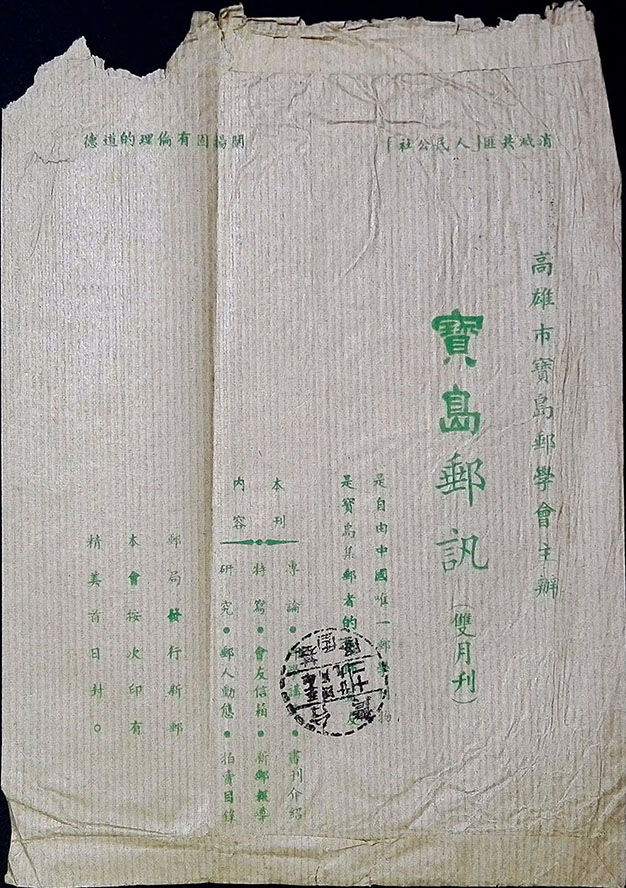 消滅共匪「人民公社」
闡揚固有倫理的道德
高雄市寶島郵學會主辦
寶島郵訊(雙月刊)
是自由中國唯一郵學刊物
是寶島集郵者的
本刊
內容
專論●
書刊介紹
特寫●會友信箱●新郵報導
研究●郵人動態●拍賣目錄
郵局發行新郵
本會按次印有
精美首日封。